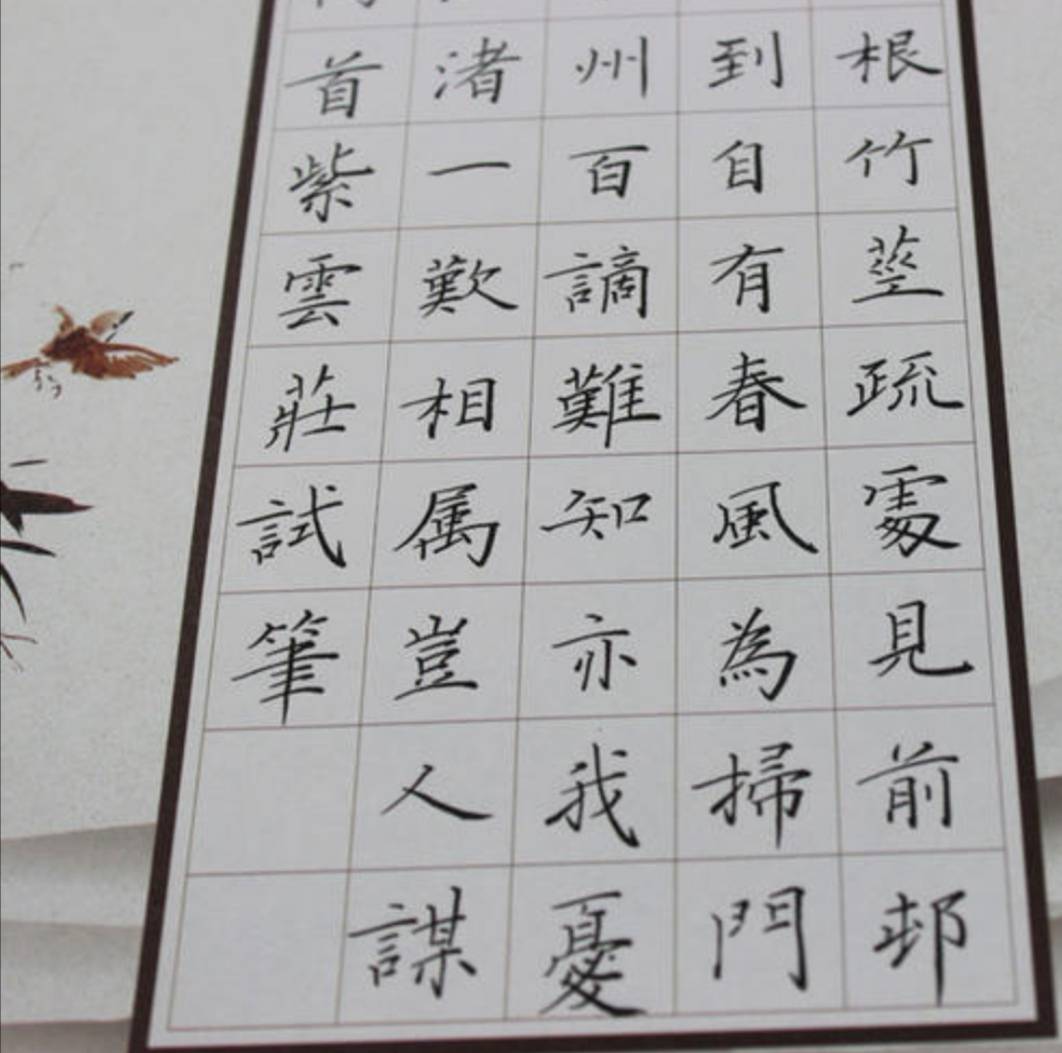 根竹莖疏處見前邨
到自有春風為掃門
州百謫難知亦我憂
渚一歎相属豈人謀
首紫雲莊試筆